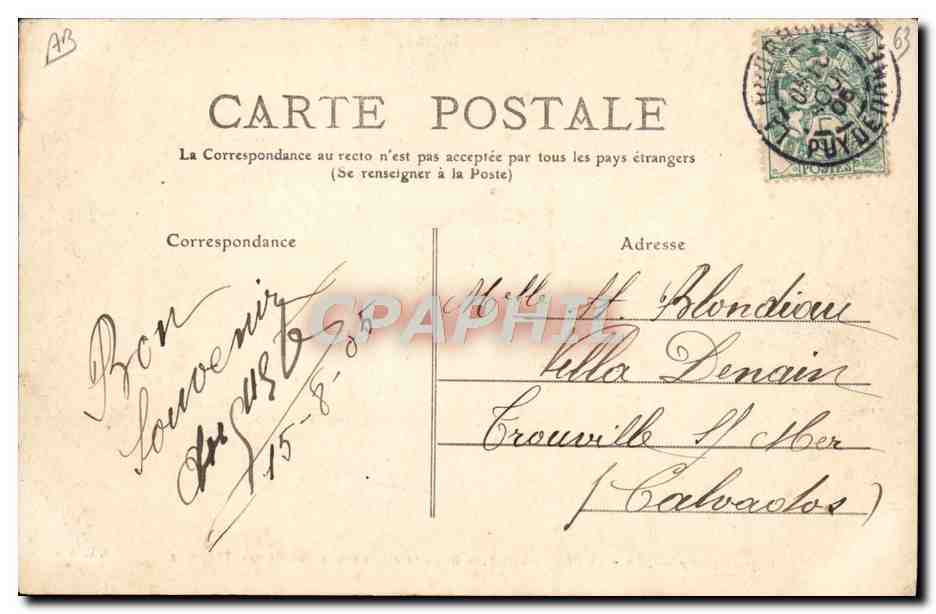 AB
63
LA BOURBOULE
PUY DE DOME
POSTES
CARTE POSTALE
La Correspondance au recto n'est pas acceptée par tous les pays étrangers
(Se renseigner à la Poste)
Correspondance
Adresse
CPAPHIL
Bon
Souvenir
15-8-05
Melle H. Blondiau
Villa Denain
Trouville s/ Mer
(Calvados)